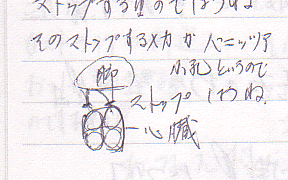 ストップするものでしょうね
そのストップする メカ が ベニッツア
小孔というので
しょうね.
肺
ストップ
心臓